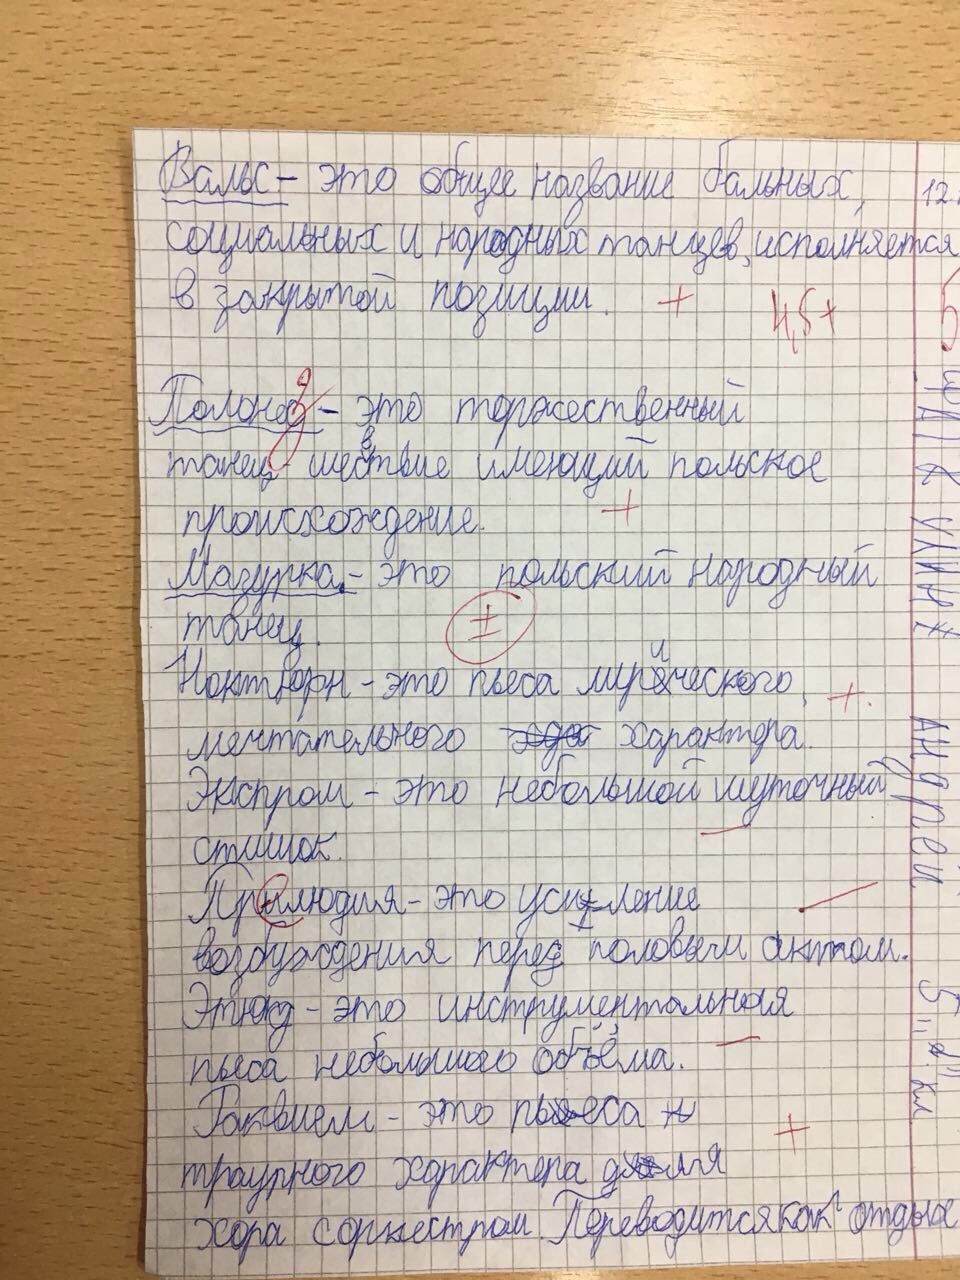 Вальс - это общее название бальных,
социальных и народных танцев, исполняется
в закрытой позиции. +
4,5+
Полонез - это торжественный
танец шествие имеющий польское
происхождение. +
Мазурка - это польский народный
танец. ±
Ноктюрн - это пьеса лирического, +.
мечтательного характера.
Экспром - это небольшой шуточный
стишок. —
Прелюдия - это усиление
возбуждения перед половым актом.
Этюд - это инструментальная
пьеса небольшого объёма. —
Раквием - это пьеса
траурного характера для +
хора с оркестром. Переводится как отдых
12.
5
Андрей
5 "д" кл